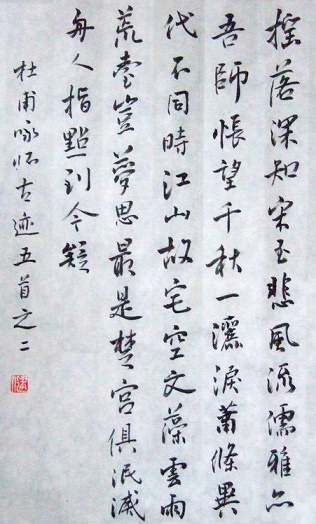 摇落深知宋玉悲風流儒雅亦
吾師悵望千秋一灑淚蕭條異
代不同時江山故宅空文藻雲雨
荒臺豈夢思最是楚宫俱泯滅
舟人指點到今疑
杜甫咏怀古迹五首之二